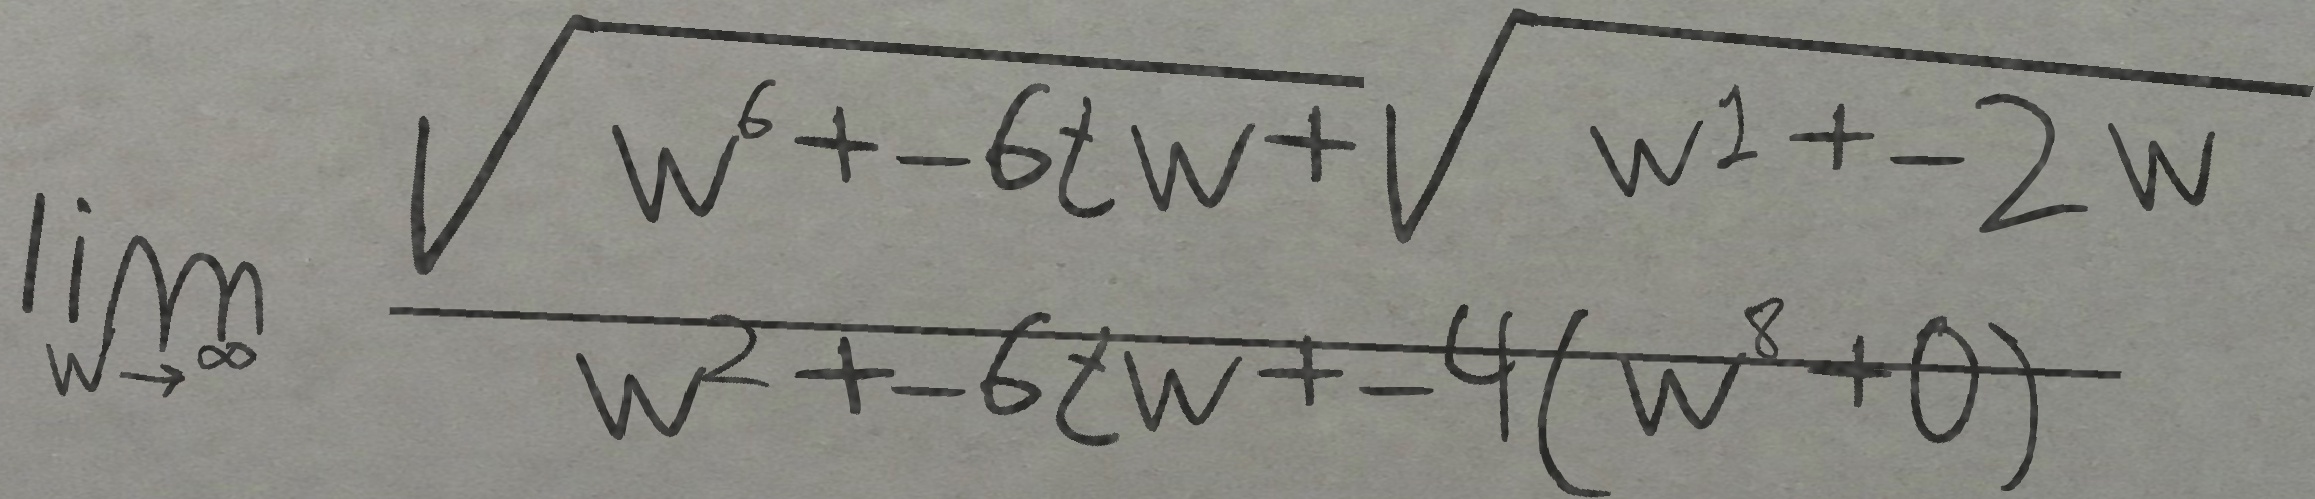 \lim_{w \to \infty} \frac{\sqrt{w^6 + -6tw} + \sqrt{w^1 + -2w}}{w^2 + -6tw + -4(w^8 + 0)}